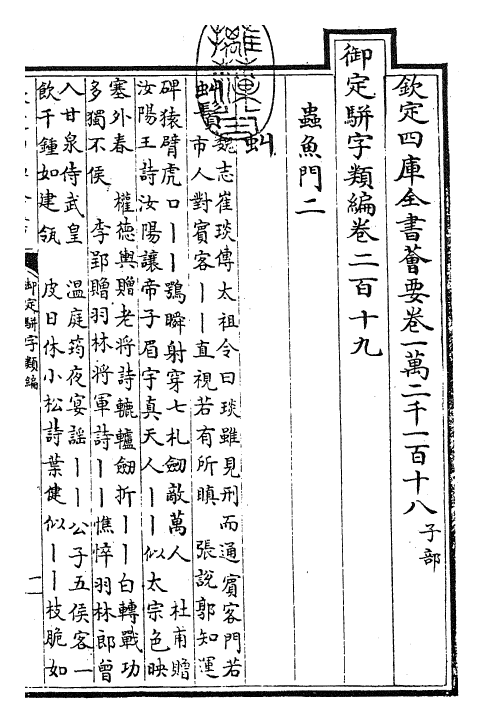 欽定四庫全書薈要卷一萬二千一百十八 子部
御定駢字類編卷二百十九
蟲魚門二
虯
虯鬚 魏志崔琰傳太祖令曰琰雖見刑而通賓客門若
市人對賓客丨丨直視若有所瞋 張說郭知運
碑猿臂虎口丨丨鶚瞬射穿七札劒敵萬人 杜甫贈
汝陽王詩汝陽讓帝子眉宇真天人丨丨似太宗色映
塞外春 權德輿贈老將詩轆轤劒折丨丨白轉戰功
多獨不侯 李郢贈羽林將軍詩丨丨憔悴羽林郎曾
入甘泉侍武皇 溫庭筠夜宴謠丨丨公子五侯客一
飲千鍾如建瓴 皮日休小松詩葉健似丨丨枝脆如
御定駢字類編
一